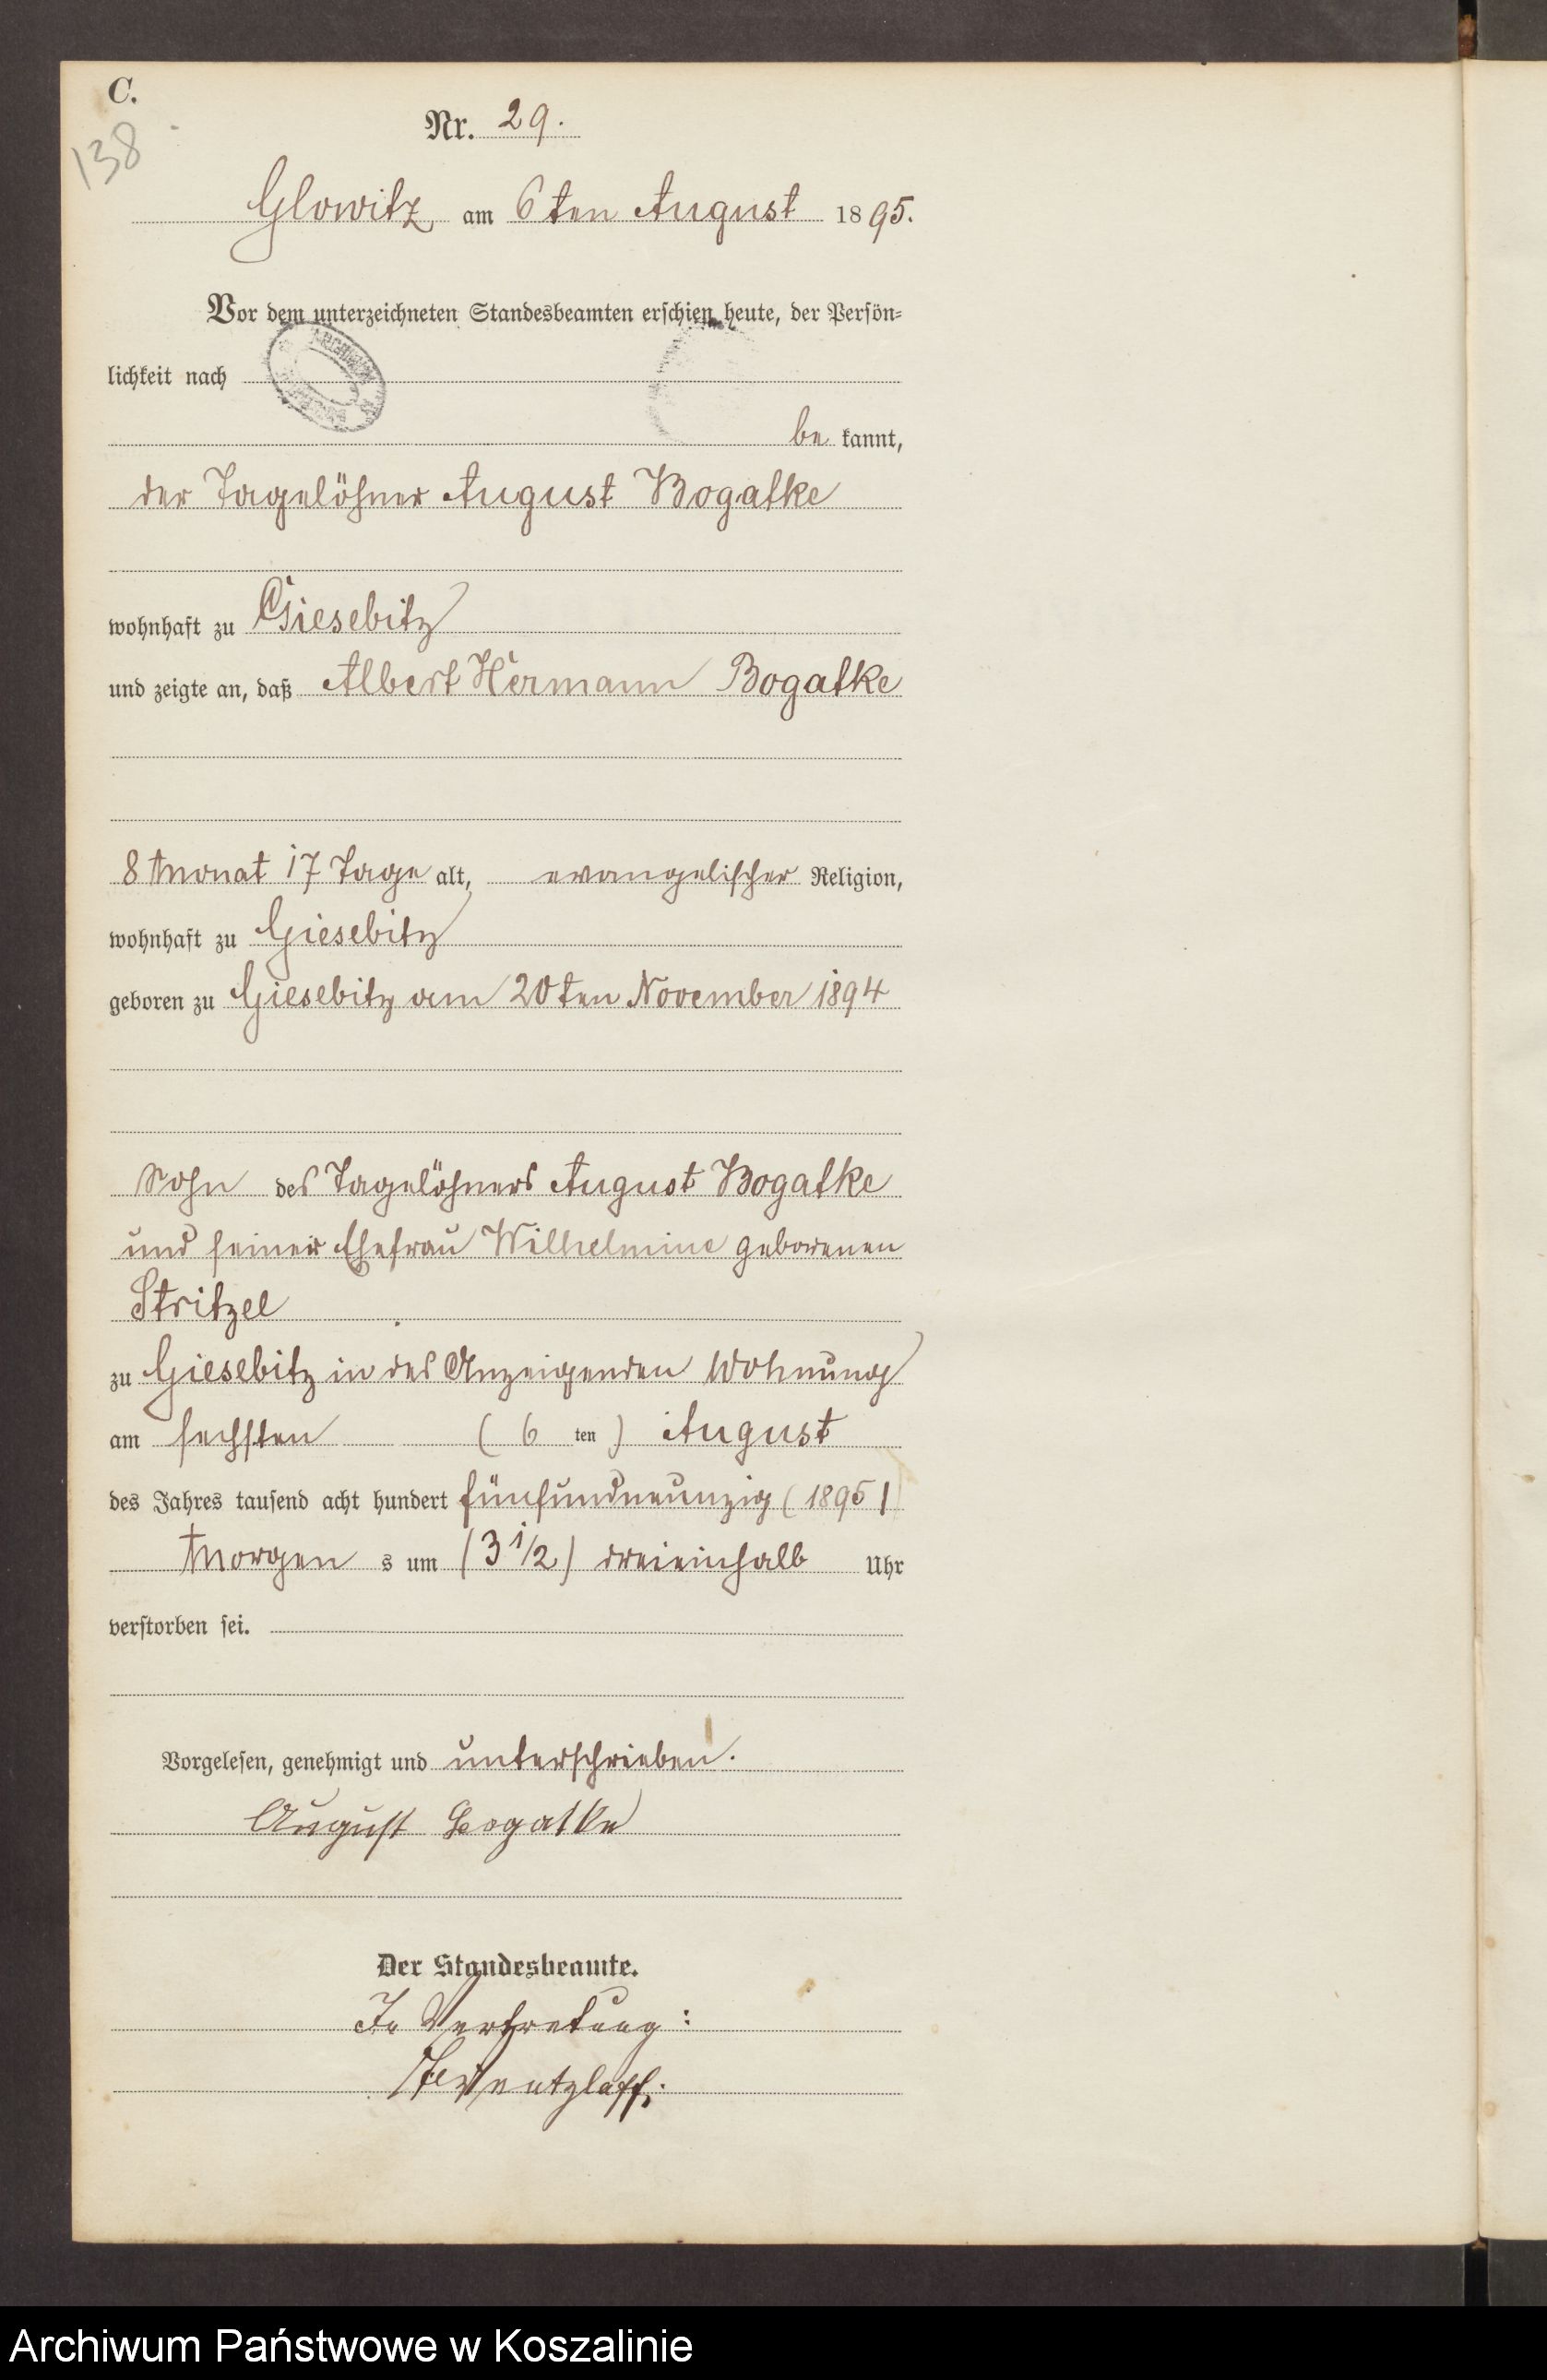 C.
138
Nr. 29.
Glowitz am 6ten August 1895.
Vor dem unterzeichneten Standesbeamten erschien heute, der Persön-
lichkeit nach
be kannt,
der Tagelöhner August Bogatke
wohnhaft zu Giesebitz
und zeigte an, daß Albert Hermann Bogatke
8 Monat 17 Tage alt, evangelischer Religion,
wohnhaft zu Giesebitz
geboren zu Giesebitz am 20ten November 1894
Sohn des Tagelöhners August Bogatke
und seiner Ehefrau Wilhelmine geborenen
Stritzel
zu Giesebitz in des Anzeigenden Wohnung
am sechsten (6 ten) August
des Jahres tausend acht hundert fünfundneunzig (1895)
Morgen s um (3 1/2) dreieinhalb Uhr
verstorben sei.
Vorgelesen, genehmigt und unterschrieben.
August Bogatke
Der Standesbeamte.
In Vertretung:
Archiwum Państwowe w Koszalinie